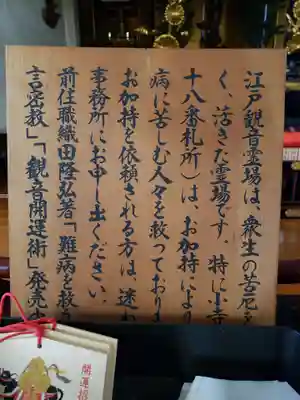 江戸観音霊場は、衆生の苦厄を
く、活きた霊場です。特に小寺
十八番札所）は、お加持により
病に苦しむ人々を救っておりま
お加持を依頼される方は、迷わ
事務所にお申し出ください。
前住職織田隆弘著「難病を救う
言密教」「観音開運術」発売中
開運招